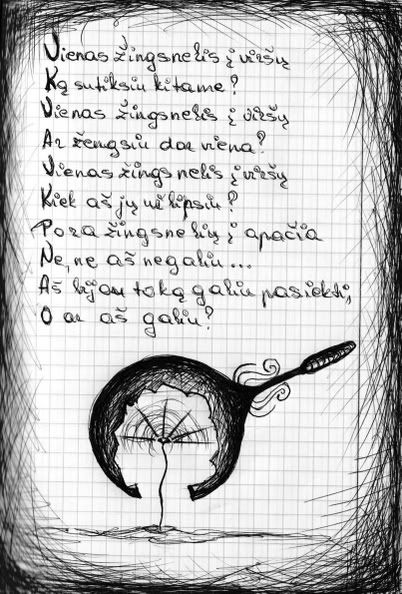 Vienas žingsnelis į viršų
Ką sutiksiu kitame?
Vienas žingsnelis į viršų
Ar žengsiu dar viena?
Vienas žingsnelis į viršų
Kiek aš jų užlipsiu?
Pora žingsnelių į apačia
Ne, ne aš negaliu...
Aš bijau to ką galiu pasiekti,
O ar aš galiu?